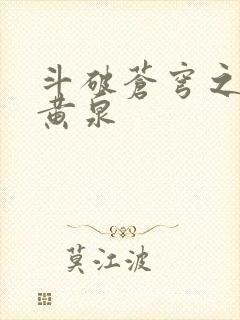 斗破苍穹之
黄泉
莫江波